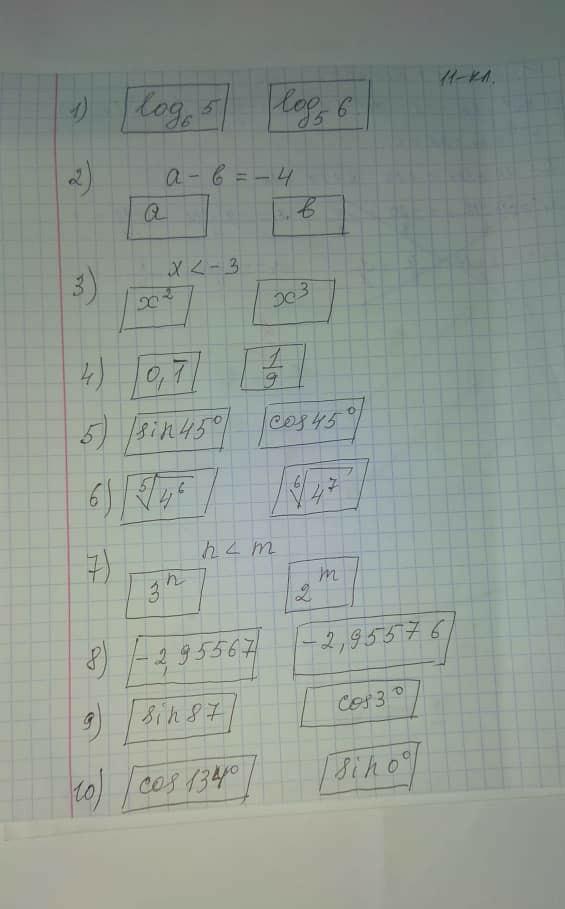 11-кл.
1) log₆ 5 log₅ 6
2) a - в = -4
a в
x < -3
3) x² x³
4) 0,1 1/9
5) sin 45° cos 45°
6) ⁵√4⁶ ⁶√4⁷
n < m
7) 3ⁿ 2ᵐ
8) -2,95567 -2,95576
9) sin 87 cos 3°
10) cos 134° sin 0°